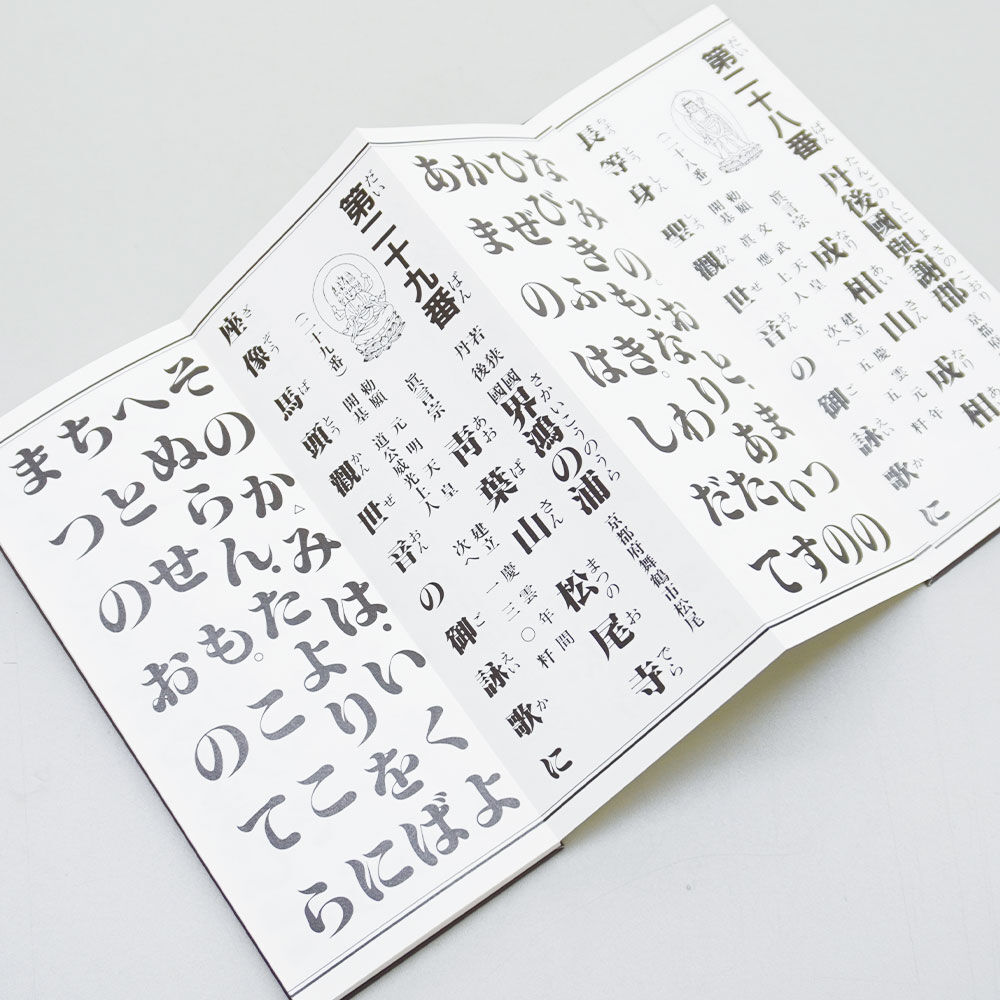 第二十八番
丹後國與謝郡 京都府
成相山成相
眞言宗
勅願 文武天皇 建立 慶雲元年
開基 眞應上人 次へ 五五粁
(二十八番)
長等身聖觀世音の御詠歌に
なみのおと、まつの
ひびきも。なりあいの
かぜふきわたす
あまのはしだて
第二十九番
若狭國
丹後國
界鴻の浦 京都府舞鶴市松尾
青葉山松尾寺
眞言宗
勅願 元明天皇 建立 慶雲年間
開基 道公威光上人 次へ 一三〇粁
(二十九番)
座像馬頭觀世音の御詠歌に
そのかみは、いくよ
へぬらん、たよりをば
ちとせも。ここに
まつのおのてら